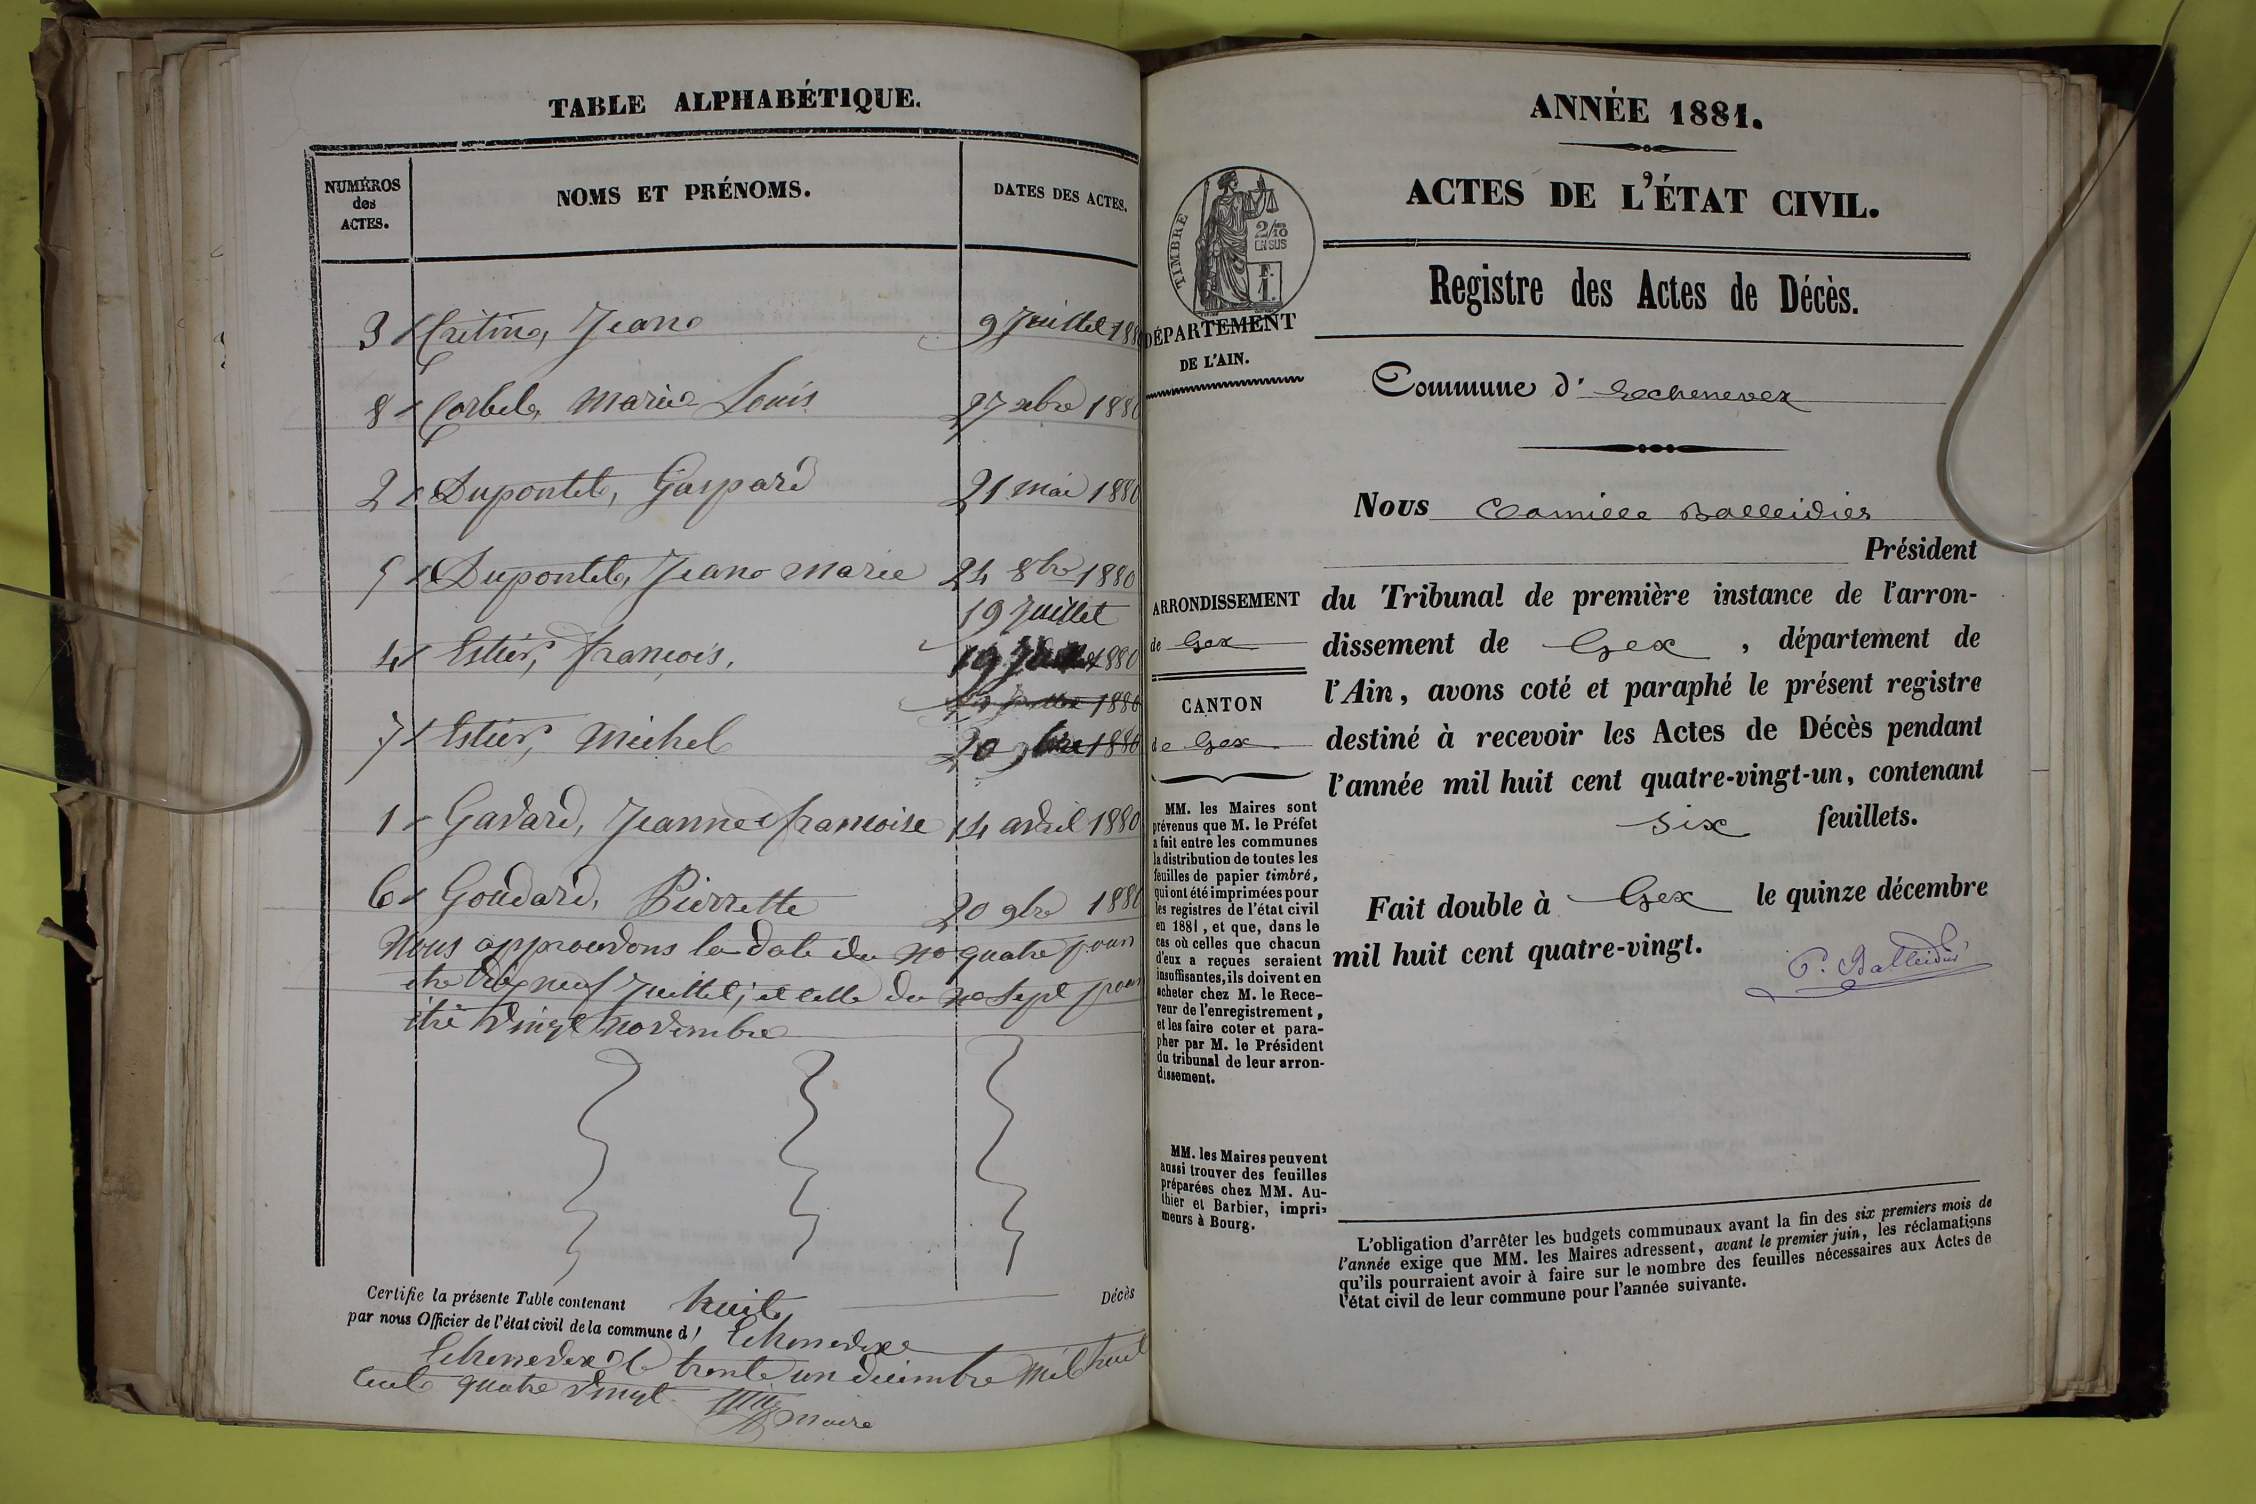 TABLE ALPHABÉTIQUE.
NUMÉROS
des
ACTES.
NOMS ET PRÉNOMS.
DATES DES ACTES.
3 Critin, Jean 9 Juillet 1880
8 Corbet, Marie Louis 27 xbre 1880
2 Dupontet, Gaspard 21 mai 1880
5 Dupontet, Jean Marie 24 8bre 1880
19 Juillet
4 Estier, françois, 19 1880
1880
7 Estier, Michel 20 9bre 1880
1 Gavard, Jeanne françoise 14 avril 1880
6 Goudard, Pierrette 20 9bre 1880
Nous approuvons la date du no quatre pour
être dix neuf Juillet, et celle du no sept pour
être vingt novembre
Certifie la présente Table contenant huit Décès
par nous Officier de l'état civil de la commune d' Echenevex
Echenevex le trente un décembre mil huit
cent quatre vingt
maire
ANNÉE 1881.
ACTES DE L'ÉTAT CIVIL.
TIMBRE
2/10
EN SUS
F.
1.
Registre des Actes de Décès.
DÉPARTEMENT
DE L'AIN.
Commune d' Echenevex
Nous Camille Balleidier
Président
du Tribunal de première instance de l'arron-
dissement de Gex, département de
l'Ain, avons coté et paraphé le présent registre
destiné à recevoir les Actes de Décès pendant
l'année mil huit cent quatre-vingt-un, contenant
six feuillets.
Fait double à Gex le quinze décembre
mil huit cent quatre-vingt.
Balleidier
ARRONDISSEMENT
de Gex
CANTON
de Gex
MM. les Maires sont
prévenus que M. le Préfet
a fait entre les communes
la distribution de toutes les
feuilles de papier timbré,
qui ont été imprimées pour
les registres de l'état civil
en 1881, et que, dans le
cas où celles que chacun
d'eux a reçues seraient
insuffisantes, ils doivent en
acheter chez M. le Rece-
veur de l'enregistrement,
et les faire coter et para-
pher par M. le Président
du tribunal de leur arron-
dissement.
MM. les Maires peuvent
aussi trouver des feuilles
préparées chez MM. Au-
thier et Barbier, impri-
meurs à Bourg.
L'obligation d'arrêter les budgets communaux avant la fin des six premiers mois de
l'année exige que MM. les Maires adressent, avant le premier juin, les réclamations
qu'ils pourraient avoir à faire sur le nombre des feuilles nécessaires aux Actes de
l'état civil de leur commune pour l'année suivante.